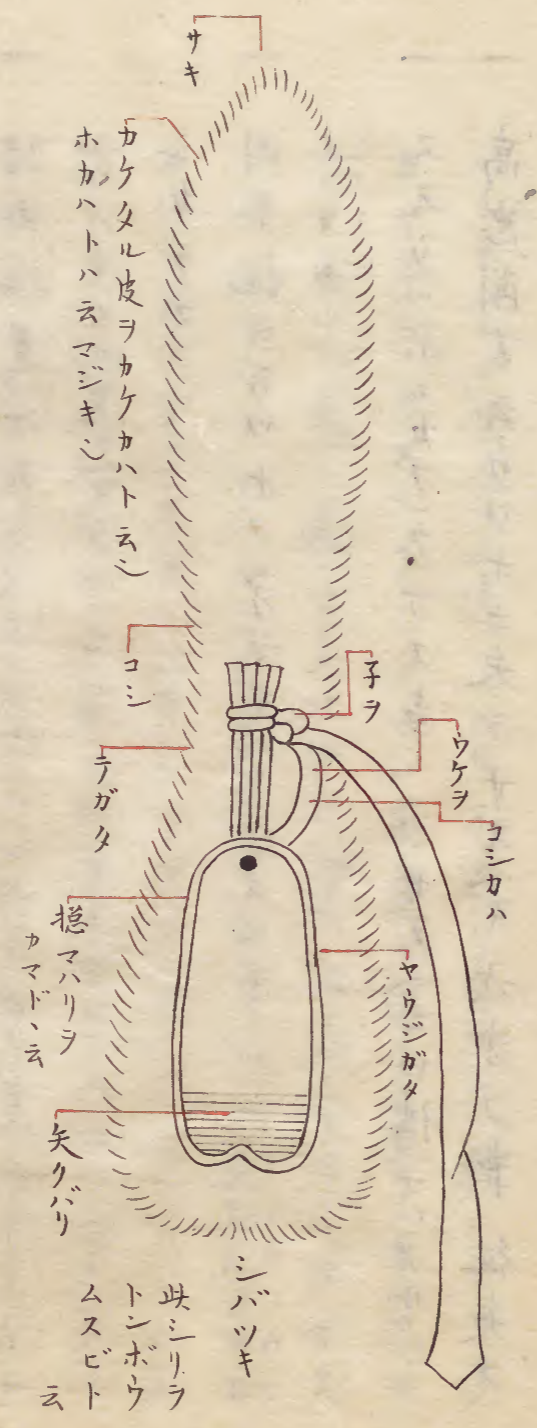 サキ
カケタル皮ヲカケカハト云也
ホカハトハ云マジキ也
コシ
子ヲ
ウケヲ
コシカハ
テガタ
ヤウジガタ
摠マハリヲ
カマドヽ云
矢クバリ
シバツキ
此シリヲ
トンボウ
ムスビト
云